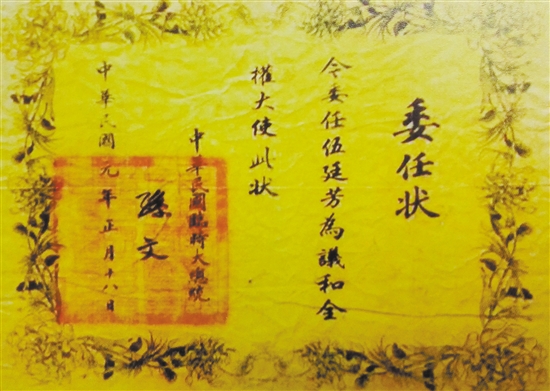 委任状
今委任伍廷芳為議和全
權大使此状
中華民國臨時大總統
孫文
中華民國元年正月十八日